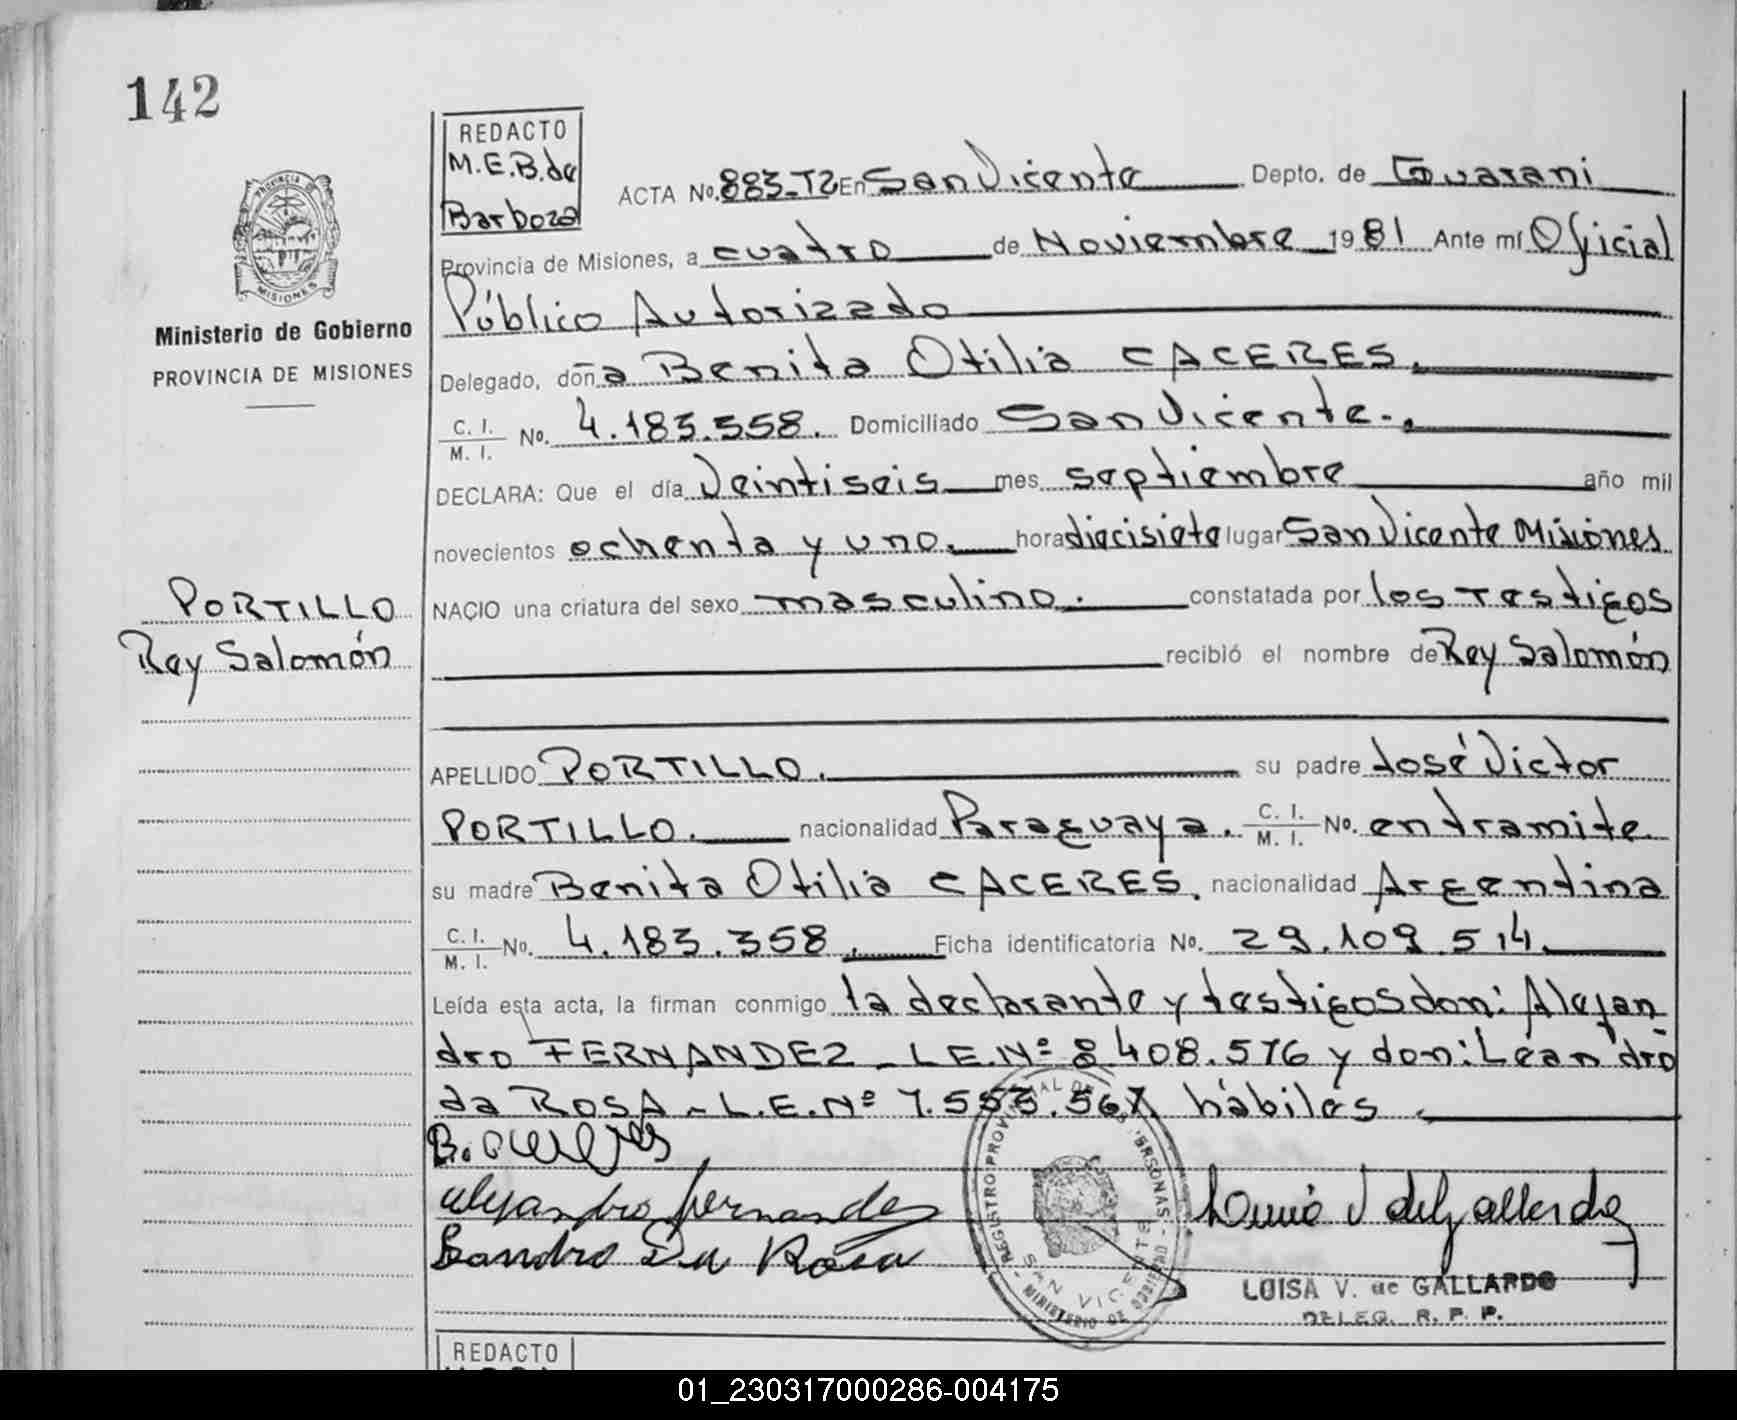 142
REDACTO
M.E.B.de
Barboza
PROVINCIA DE
MISIONES
Ministerio de Gobierno
PROVINCIA DE MISIONES
ACTA No. 883-T2 En San Vicente Depto. de Guarani
Provincia de Misiones, a cuatro de Noviembre 1981 Ante mí Oficial
Público Autorizado
Delegado, doña Benita Otilia CACERES.
C. I. / M. I. No. 4.183.558. Domiciliado San Vicente.-
DECLARA: Que el día Veintiseis mes septiembre año mil
novecientos ochenta y uno. hora diecisiete lugar San Vicente Misiones
NACIO una criatura del sexo masculino. constatada por los testigos
recibió el nombre de Rey Salomón
PORTILLO
Rey Salomón
APELLIDO PORTILLO. su padre José Victor
PORTILLO. nacionalidad Paraguaya. C. I. / M. I. No. entramite
su madre Benita Otilia CACERES. nacionalidad Argentina
C. I. / M. I. No. 4.183.358. Ficha identificatoria No. 29.109.514.
Leída esta acta, la firman conmigo la declarante y testigos don: Alejan
dro FERNANDEZ - L.E.Nº 8.408.576 y don: Leandro
da ROSA - L.E.Nº 7.553.567 hábiles.
Alejandro fernandez
Leandro Da Rosa
REGISTRO PROVINCIAL DE LAS PERSONAS
SAN VICENTE
MINISTERIO DE GOBIERNO
LUISA V. de GALLARDO
DELEG. R. P. P.
REDACTO
01_230317000286-004175